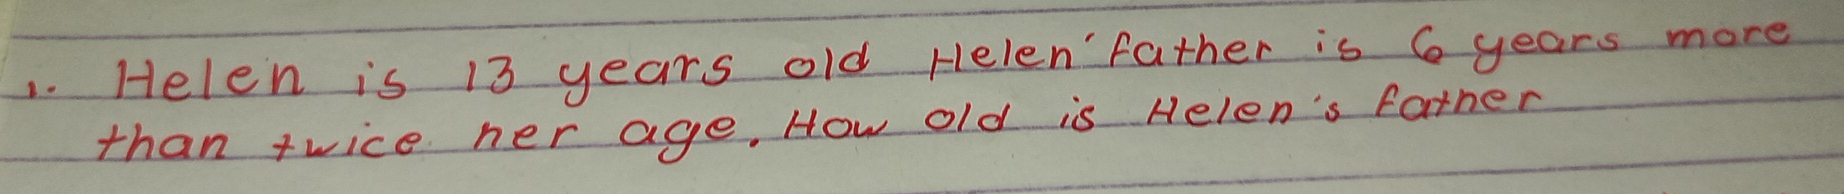 1. Helen is 13 years old Helen' father is 6 years more
than twice her age. How old is Helen's father